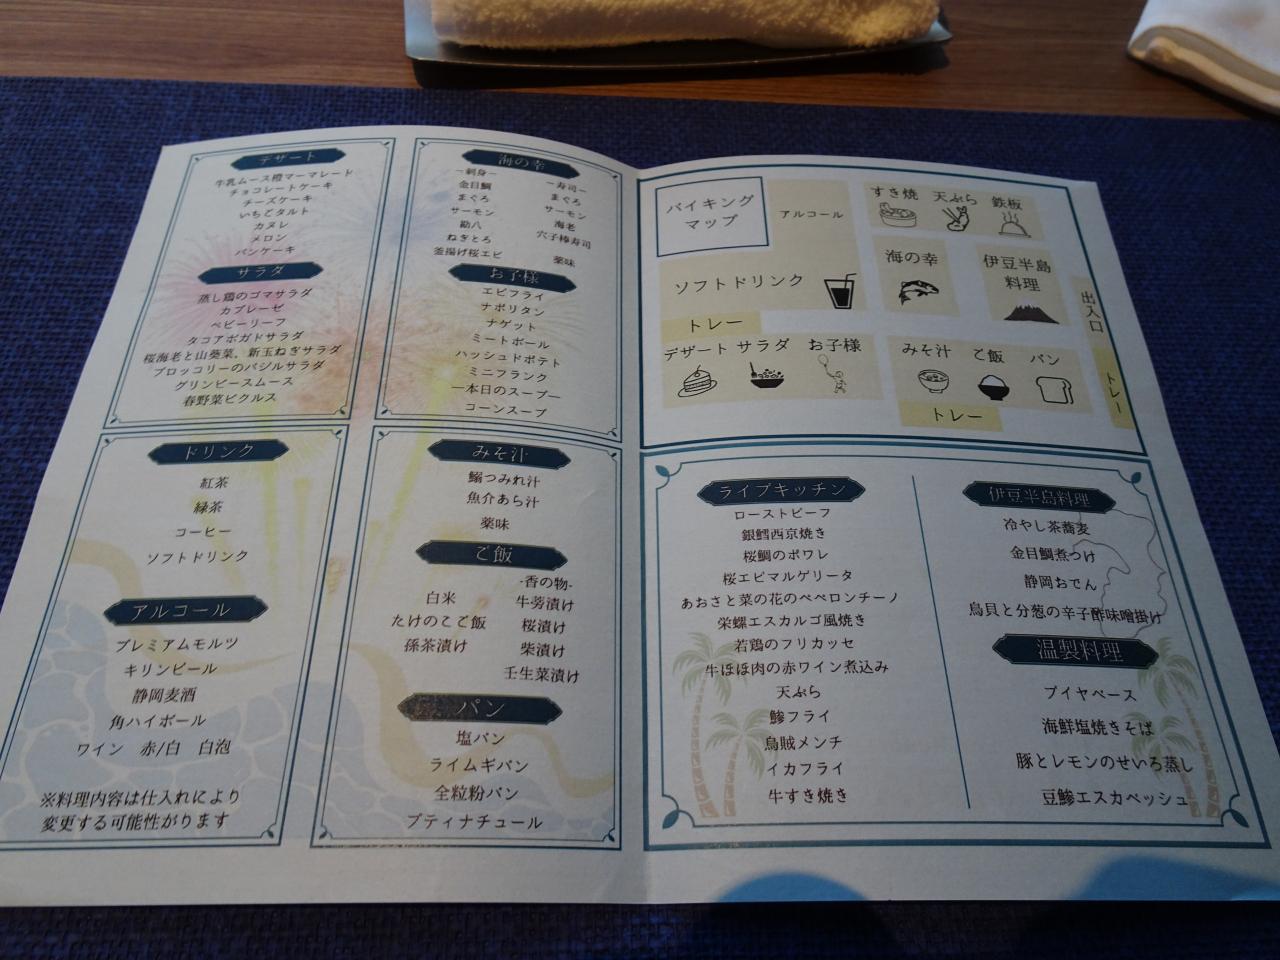 デザート
牛乳ムース橙マーマレード
チョコレートケーキ
チーズケーキ
いちごタルト
カヌレ
メロン
パンケーキ
サラダ
蒸し鶏のゴマサラダ
カプレーゼ
ベビーリーフ
タコアボガドサラダ
桜海老と山葵菜、新玉ねぎサラダ
ブロッコリーのバジルサラダ
グリンピースムース
春野菜ピクルス
海の幸
－刺身－
金目鯛
まぐろ
サーモン
勘八
ねぎとろ
釜揚げ桜エビ
－寿司－
まぐろ
サーモン
海老
穴子棒寿司
薬味
お子様
エビフライ
ナポリタン
ナゲット
ミートボール
ハッシュドポテト
ミニフランク
―本日のスープ―
コーンスープ
ドリンク
紅茶
緑茶
コーヒー
ソフトドリンク
アルコール
プレミアムモルツ
キリンビール
静岡麦酒
角ハイボール
ワイン 赤/白 白泡
※料理内容は仕入れにより
変更する可能性がります
みそ汁
鰯つみれ汁
魚介あら汁
薬味
ご飯
白米
たけのこご飯
孫茶漬け
-香の物-
牛蒡漬け
桜漬け
柴漬け
壬生菜漬け
パン
塩パン
ライムギパン
全粒粉パン
プティナチュール
バイキング
マップ
アルコール
すき焼 天ぷら 鉄板
ソフトドリンク
海の幸
伊豆半島
料理
出入口
トレー
デザート サラダ お子様
みそ汁 ご飯 パン
トレー
トレー
ライブキッチン
ローストビーフ
銀鱈西京焼き
桜鯛のポワレ
桜エビマルゲリータ
あおさと菜の花のペペロンチーノ
栄螺エスカルゴ風焼き
若鶏のフリカッセ
牛ほほ肉の赤ワイン煮込み
天ぷら
鯵フライ
烏賊メンチ
イカフライ
牛すき焼き
伊豆半島料理
冷やし茶蕎麦
金目鯛煮つけ
静岡おでん
鳥貝と分葱の辛子酢味噌掛け
温製料理
ブイヤベース
海鮮塩焼きそば
豚とレモンのせいろ蒸し
豆鯵エスカベッシュ